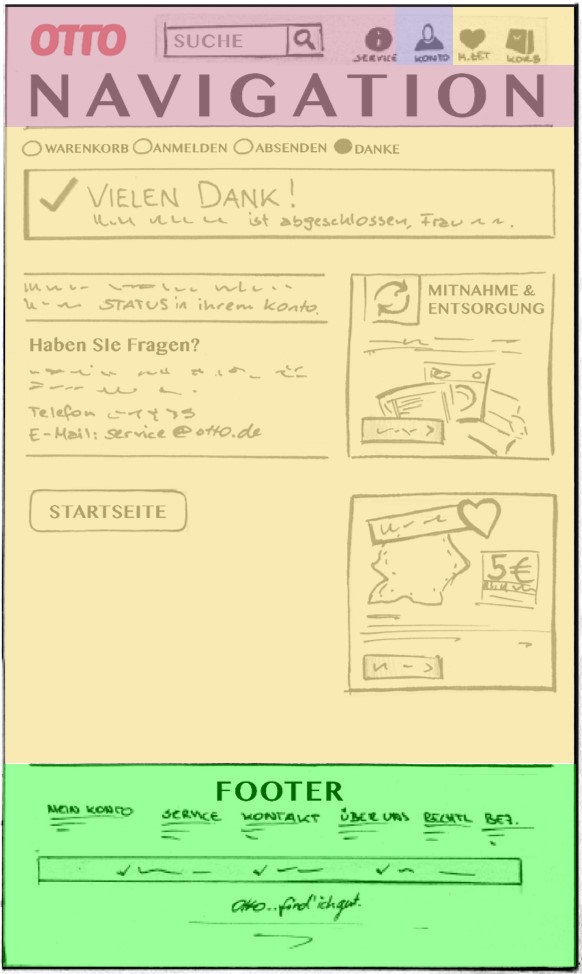 OTTO SUCHE SERVICE KONTO M.ZET KORB
NAVIGATION
WARENKORB ANMELDEN ABSENDEN DANKE
VIELEN DANK!
ist abgeschlossen, Frau
STATUS in ihrem Konto.
Haben SIe Fragen?
Telefon
E-Mail: service@otto.de
STARTSEITE
MITNAHME &
ENTSORGUNG
5€
FOOTER
MEIN KONTO SERVICE KONTAKT ÜBER UNS RECHTL BEZ.
Otto...find' ich gut.